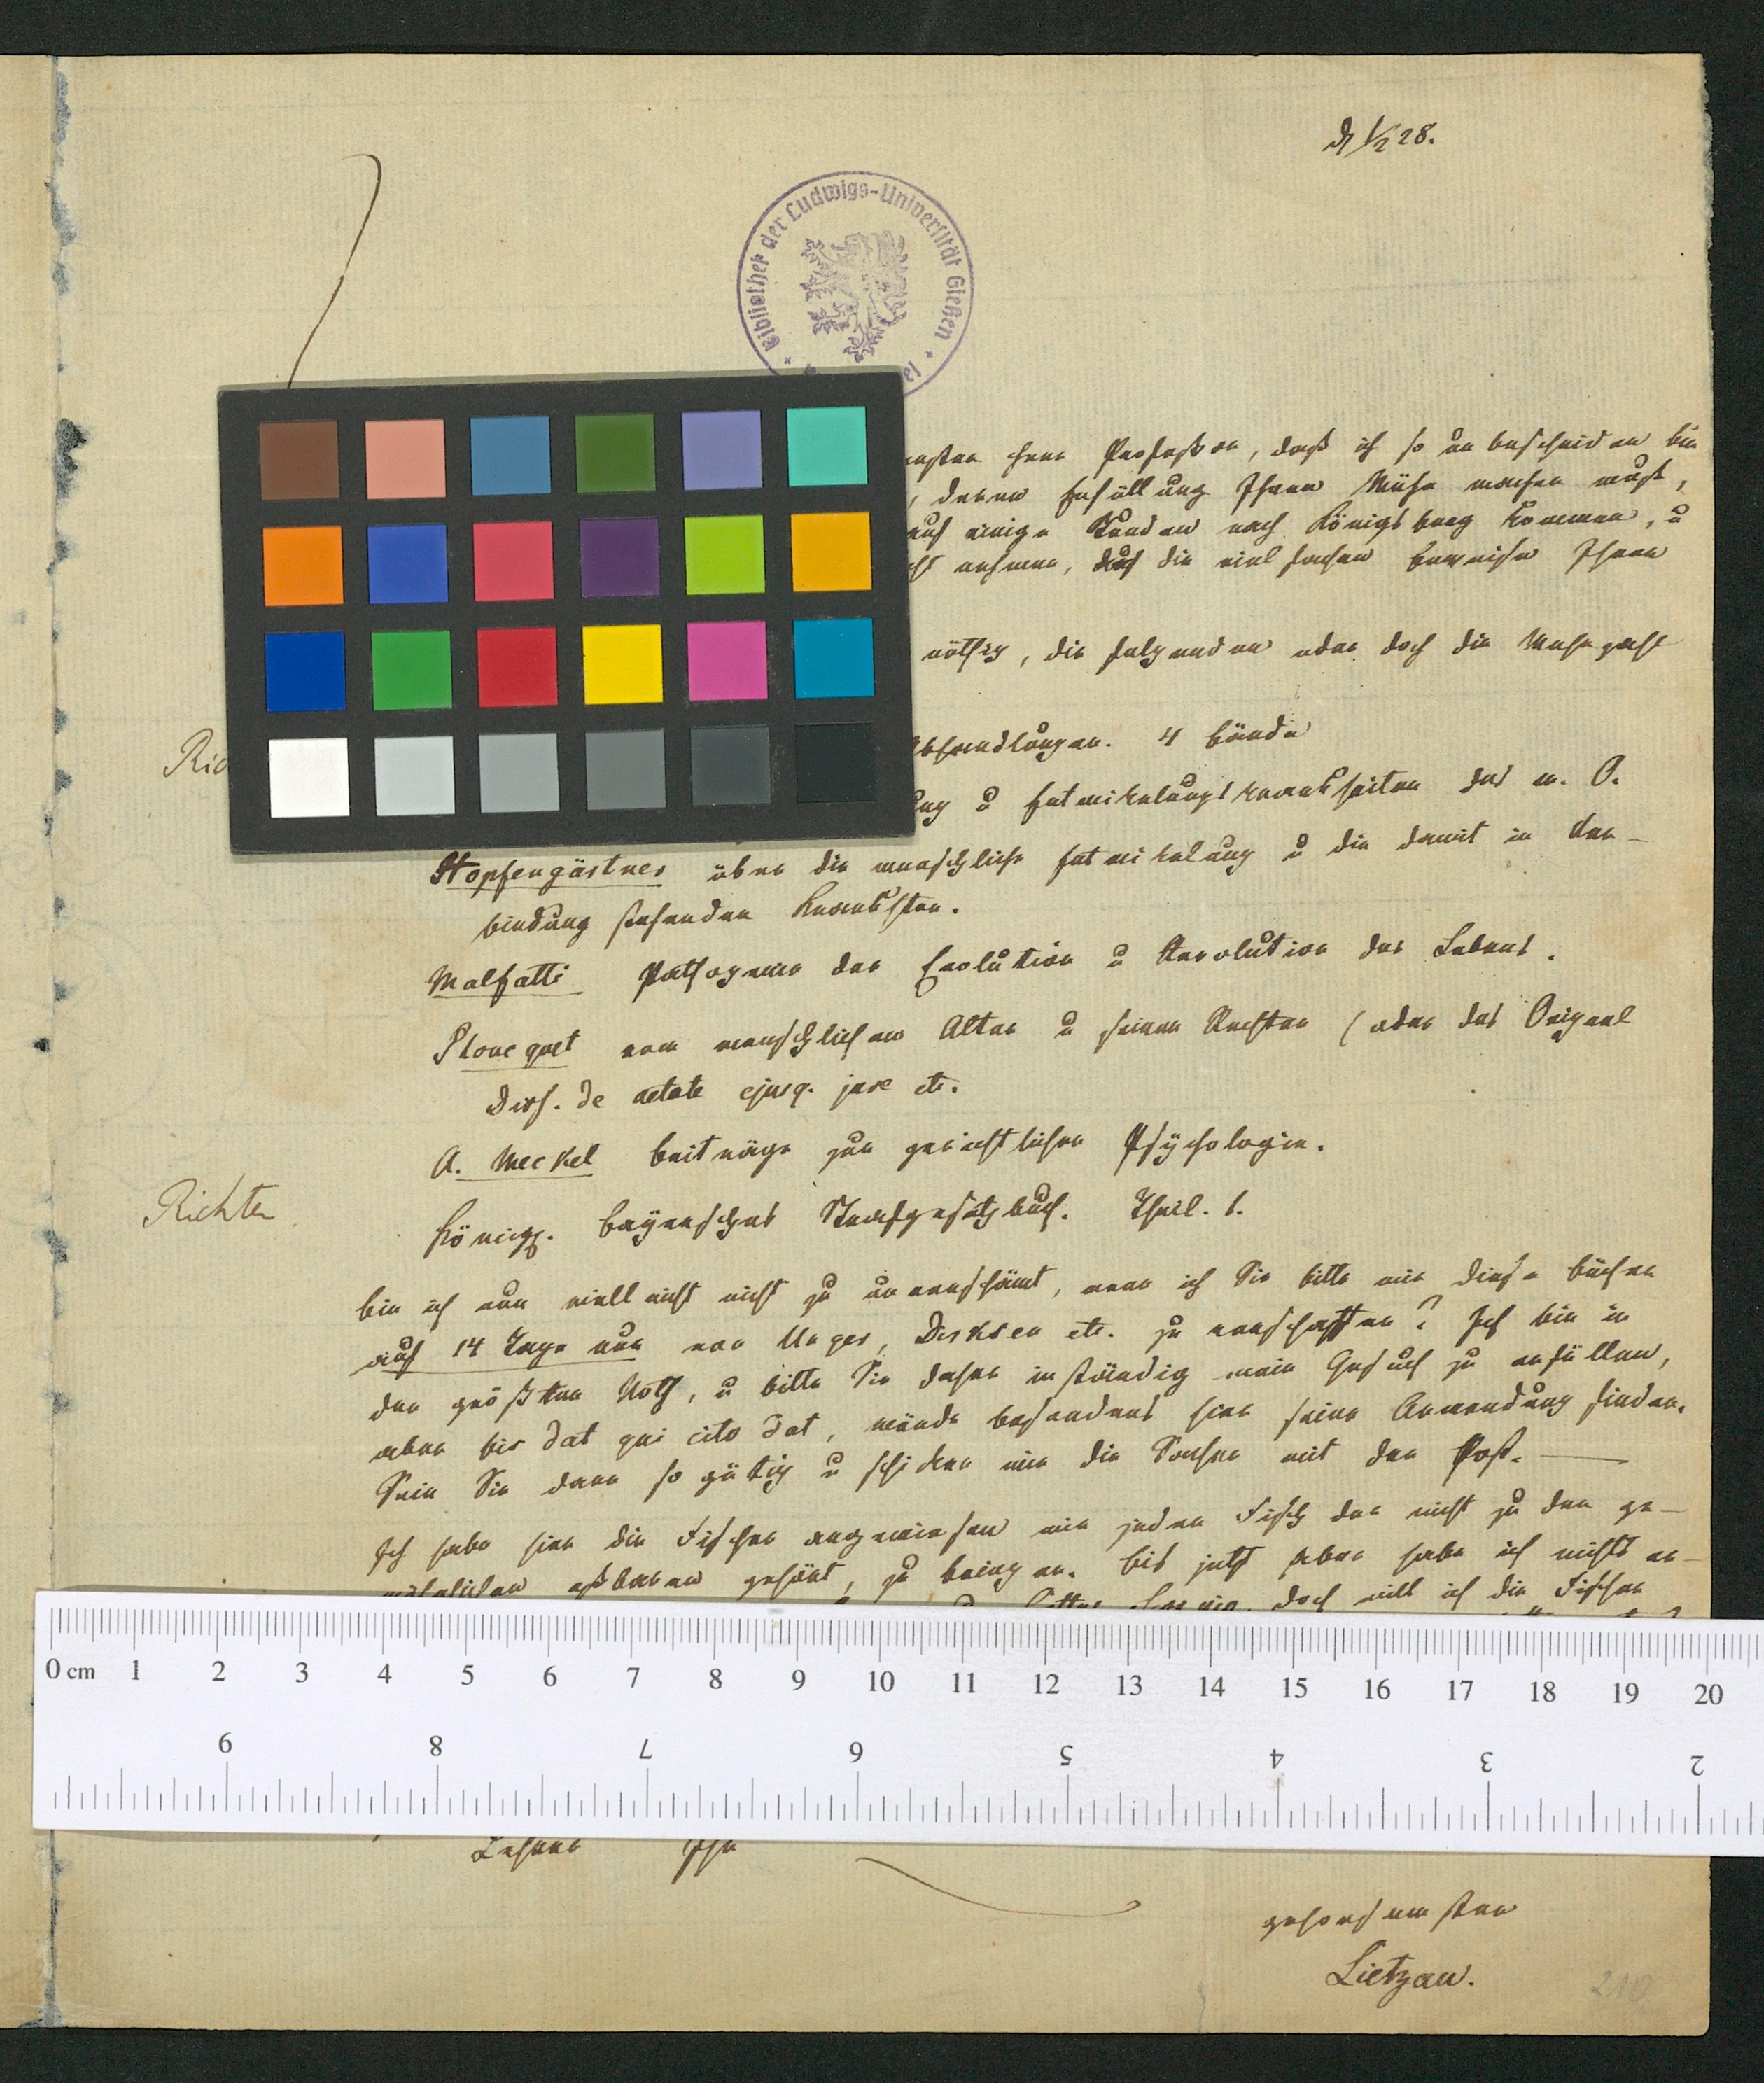 d 1/2 28.
Bibliothek der Ludwigs-Universität Gießen
Herr Professor, daß ich so unbescheiden bin
, deren Erfüllung Ihnen Mühe machen muß,
auf einige Stunden nach Königsberg kommen, u
nehmen, daß die vielfachen Beweise Ihrer
nöthig, die folgenden oder doch die Mehrzahl
Ric
Abhandlungen. 4 Bände
ung u Entwickelungskrankheiten des m. O.
Hopfengärtner über die menschliche Entwickelung u die damit in Ver-
bindung stehenden Krankhten.
Malfatti Pathogenie der Evolution u Revolution des Lebens.
Ploucquet vom menschlichen Alter u seinen Rechten (oder das Orignal
Diss. de aetate ejusq. jure etc.
A. Meckel Beiträge zur gerichtlichen Psÿchologie.
Richter
Königl. Baÿersches Strafgesetzbuch. Theil. 1.
bin ich nun vielleicht nicht zu unverschämt, wenn ich Sie bitte mir diese Bücher
auf 14 Tage nur von Unger, Dirksen etc. zu verschaffen? Ich bin in
der größten Noth, u bitte Sie daher inständig mein Gesuch zu erfüllen,
aber bis dat qui cito dat, würde besonders hier seine Anwendung finden.
Sein Sie dann so gütig u schicken mir die Sachen mit der Post. —
Ich habe hier die Fischer angewiesen mir jeden Fisch der nicht zu den ge-
wöhnlichen eßbaren gehört, zu bringen. Bis jetzt aber habe ich nichts er-
doch will ich die Fischer
0 cm 1 2 3 4 5 6 7 8 9 10 11 12 13 14 15 16 17 18 19 20
9 8 7 6 5 4 3 2
Lehrer Ihr
gehorsamster
Lietzau.
210